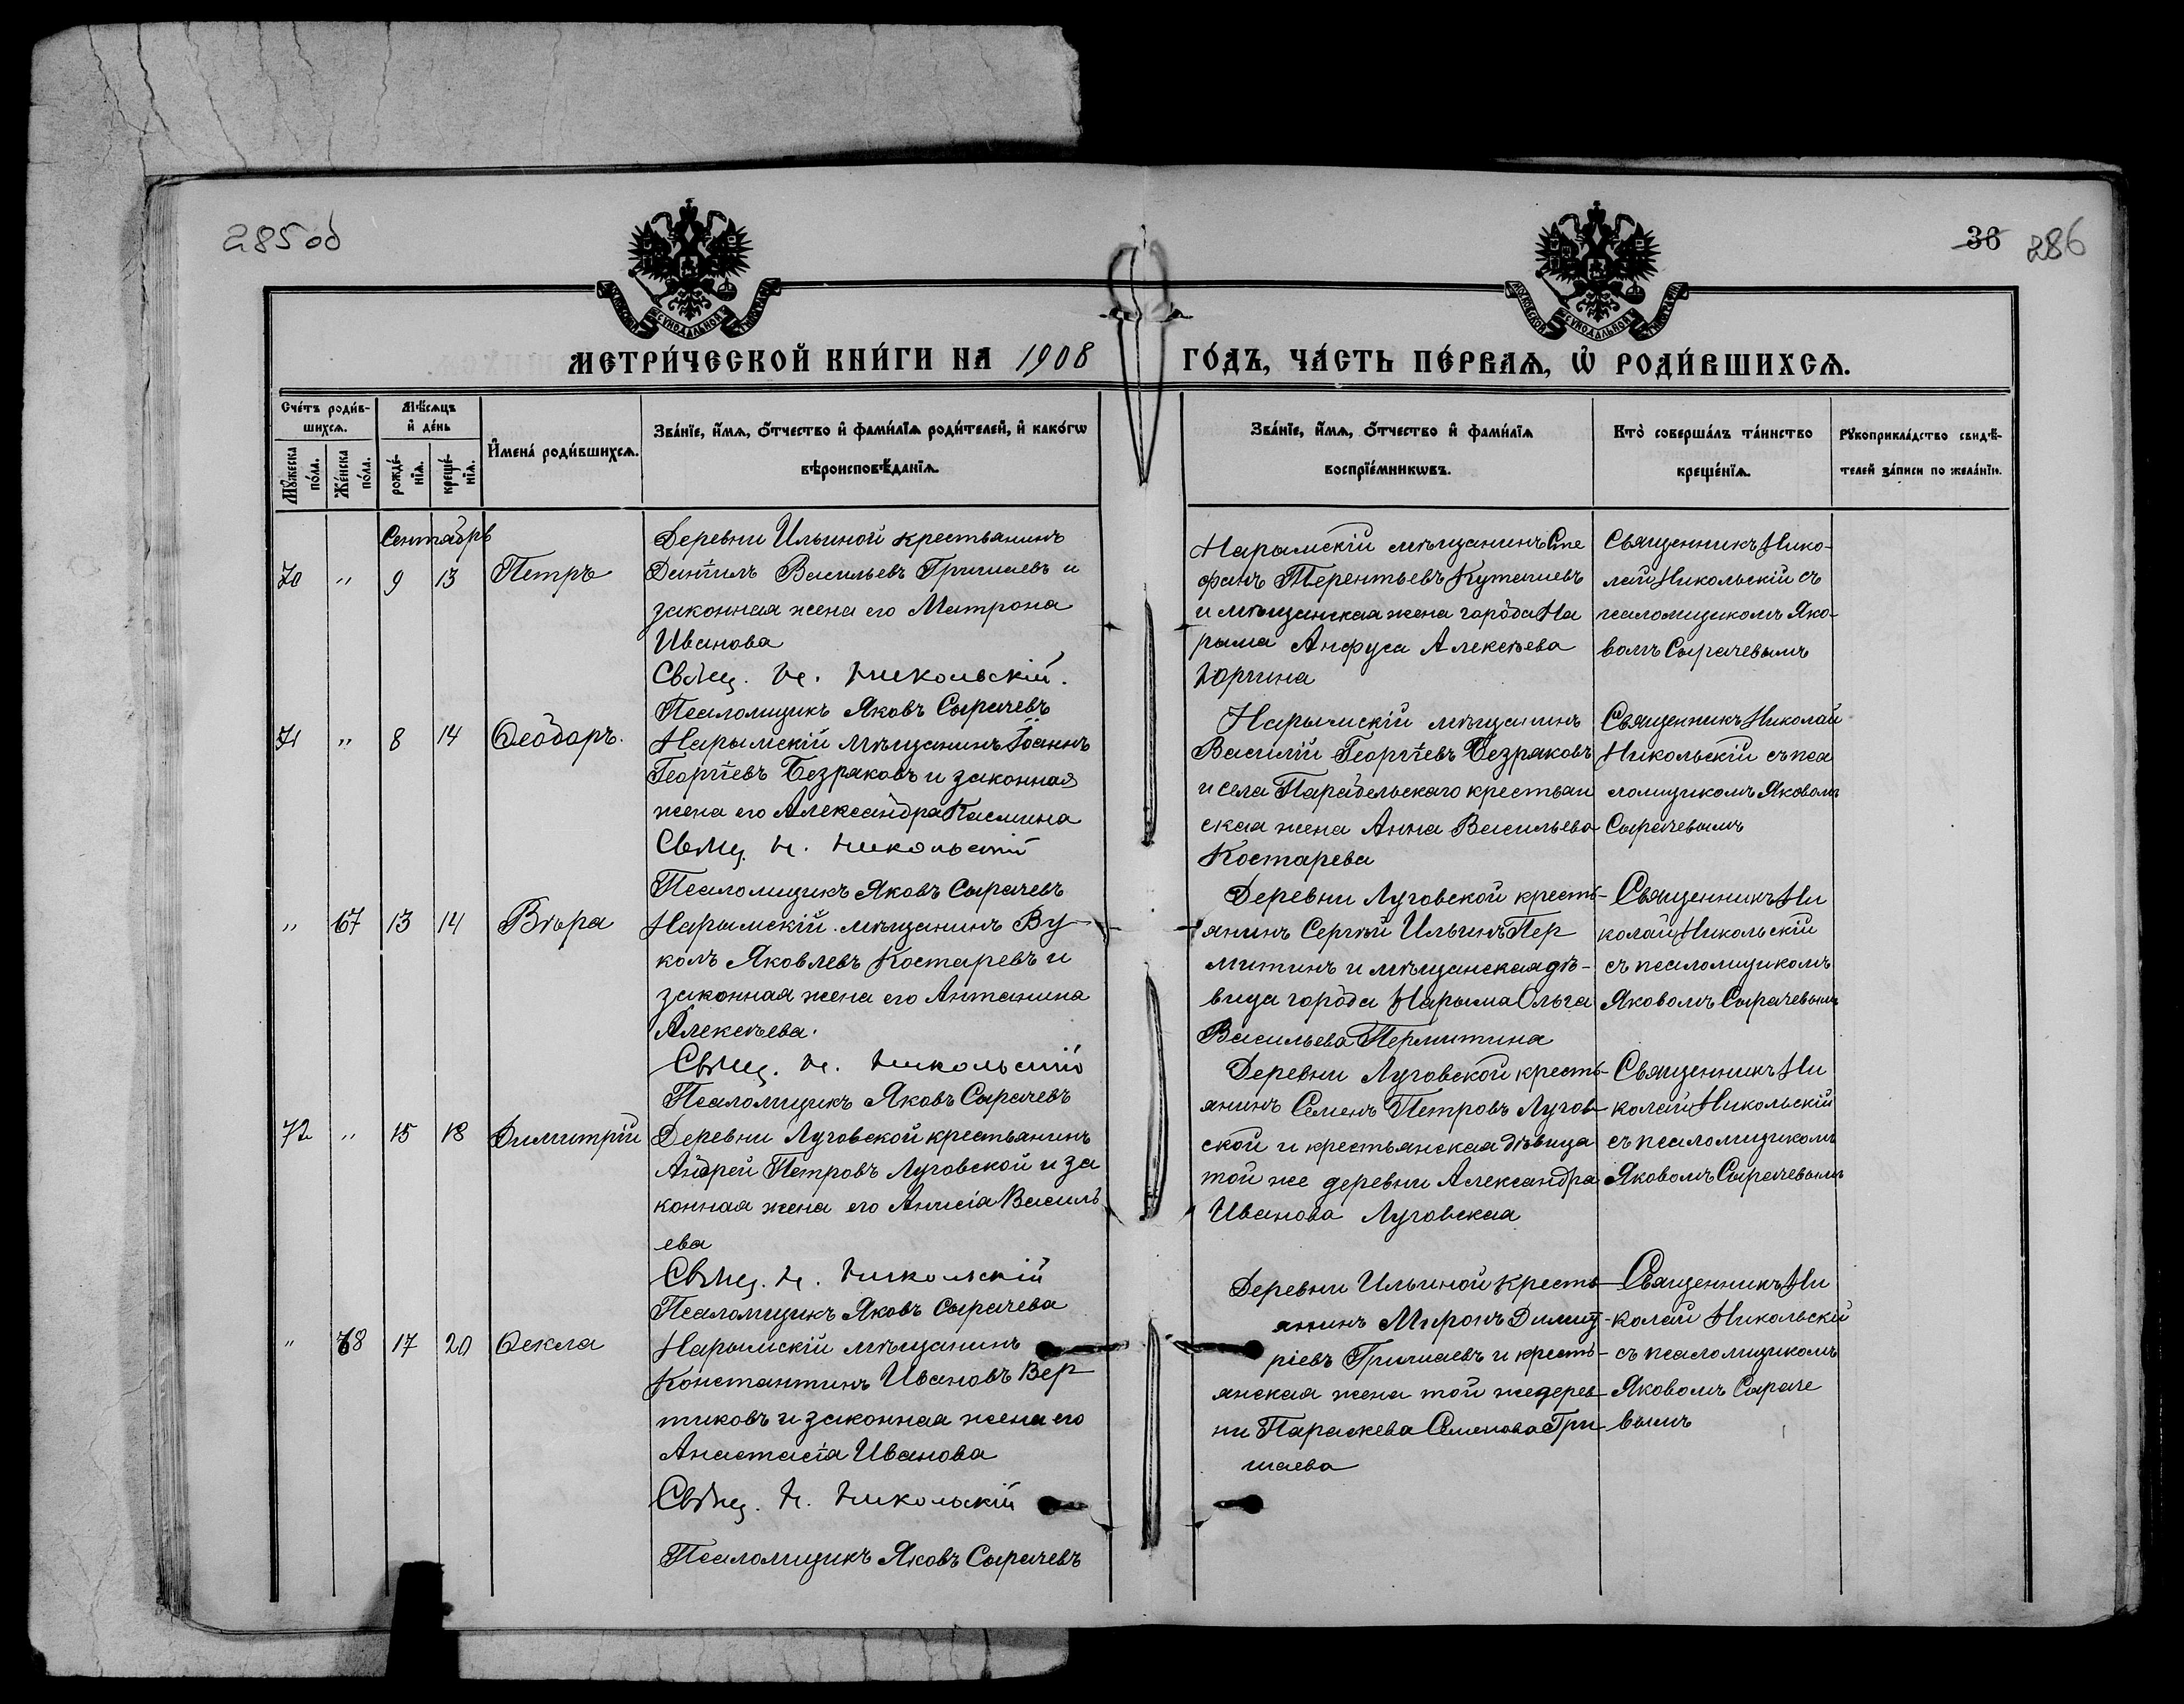 285 об
36 286
МОСКОВСКОЙ СѴНОДАЛЬНОЙ ТИПОГРАФІИ
МОСКОВСКОЙ СѴНОДАЛЬНОЙ ТИПОГРАФІИ
МЕТРИ́ЧЕСКОЙ КНИ́ГИ НА 1908 ГО́ДЪ, ЧА́СТЬ ПЕ́РВАѦ, Ѡ҆ РОДИ́ВШИХСѦ.
Сче́тъ роди́в-
шихсѧ.
Мꙋ́жеска по́ла.
Же́нска по́ла.
Мѣ́сѧцъ
и҆ де́нь
рожде́-
нїѧ.
креще́-
нїѧ.
И҆мена̀ роди́вшихсѧ.
Зва́нїе, и҆́мѧ, ѻ҆́тчество и҆ фами́лїѧ роди́телей, и҆ како́гѡ
вѣроисповѣ́данїѧ.
Зва́нїе, и҆́мѧ, ѻ҆́тчество и҆ фами́лїѧ
воспрїе́мникѡвъ.
Кто̀ соверша́лъ та́инство
креще́нїѧ.
Рꙋкоприкла́дство свидѣ́-
телей за́писи по жела́нїю.
Сентябрь
70 " 9 13 Петръ
Деревни Ильиной крестьянинъ
Даніилъ Васильевъ Гришаевъ и
законная жена его Матрона
Иванова
Свящ. Н. Никольскій.
Псаломщикъ Яковъ Сырачевъ
Нарымскій мѣщанинъ Сте
фанъ Терентьевъ Куташевъ
и мѣщанская жена города На
рыма Анфуса Алексѣева
Юргина
Священникъ Нико-
лай Никольскій съ
псаломщикомъ Яко-
вомъ Сырачевымъ
71 " 8 14 Ѳеодоръ.
Нарымскій мѣщанинъ Іоаннъ
Георгіевъ Безряковъ и законная
жена его Александра Касмина
Свящ. Н. Никольскій
Псаломщикъ Яковъ Сырачевъ
Нарымскій мѣщанинъ
Василій Георгіевъ Безряковъ
и села Парабельскаго крестьян
ская жена Анна Васильева
Костарева
Священникъ Николай
Никольскій съ пса
ломщикомъ Яковомъ
Сырачевымъ
" 67 13 14 Вѣра
Нарымскій мѣщанинъ Ву
колъ Яковлевъ Костаревъ и
законная жена его Антанина
Алексѣева.
Свящ. Н. Никольскій
Псаломщикъ Яковъ Сырачевъ
Деревни Луговской кресть-
янинъ Сергѣй Ильинъ Пер
митинъ и мѣщанская дѣ-
вица города Нарыма Ольга
Васильева Пермитина
Священникъ Ни
колай Никольскій
съ псаломщикомъ
Яковомъ Сырачевымъ
72 " 15 18 Димитрій
Деревни Луговской крестьянинъ
Андрей Петровъ Луговской и за
конная жена его Анисія Василь
ева
Свящ. Н. Никольскій
Псаломщикъ Яковъ Сырачева
Деревни Луговской кресть-
янинъ Семенъ Петровъ Лугов-
ской и крестьянская дѣвица
той же деревни Александра
Иванова Луговская
Священникъ Ни
колай Никольскій
съ псаломщикомъ
Яковомъ Сырачевымъ
" 68 17 20 Ѳекла
Нарымскій мѣщанинъ
Константинъ Ивановъ Вер
тиковъ и законная жена его
Анастасія Иванова
Свящ. Н. Никольскій
Псаломщикъ Яковъ Сырачевъ
Деревни Ильиной кресть
янинъ Миронъ Димит-
ріевъ Гришаевъ и кресть-
янская жена той же дерев
ни Параскева Семенова Гри-
шаева
Священникъ Ни
колай Никольскій
съ псаломщикомъ
Яковомъ Сыраче
вымъ